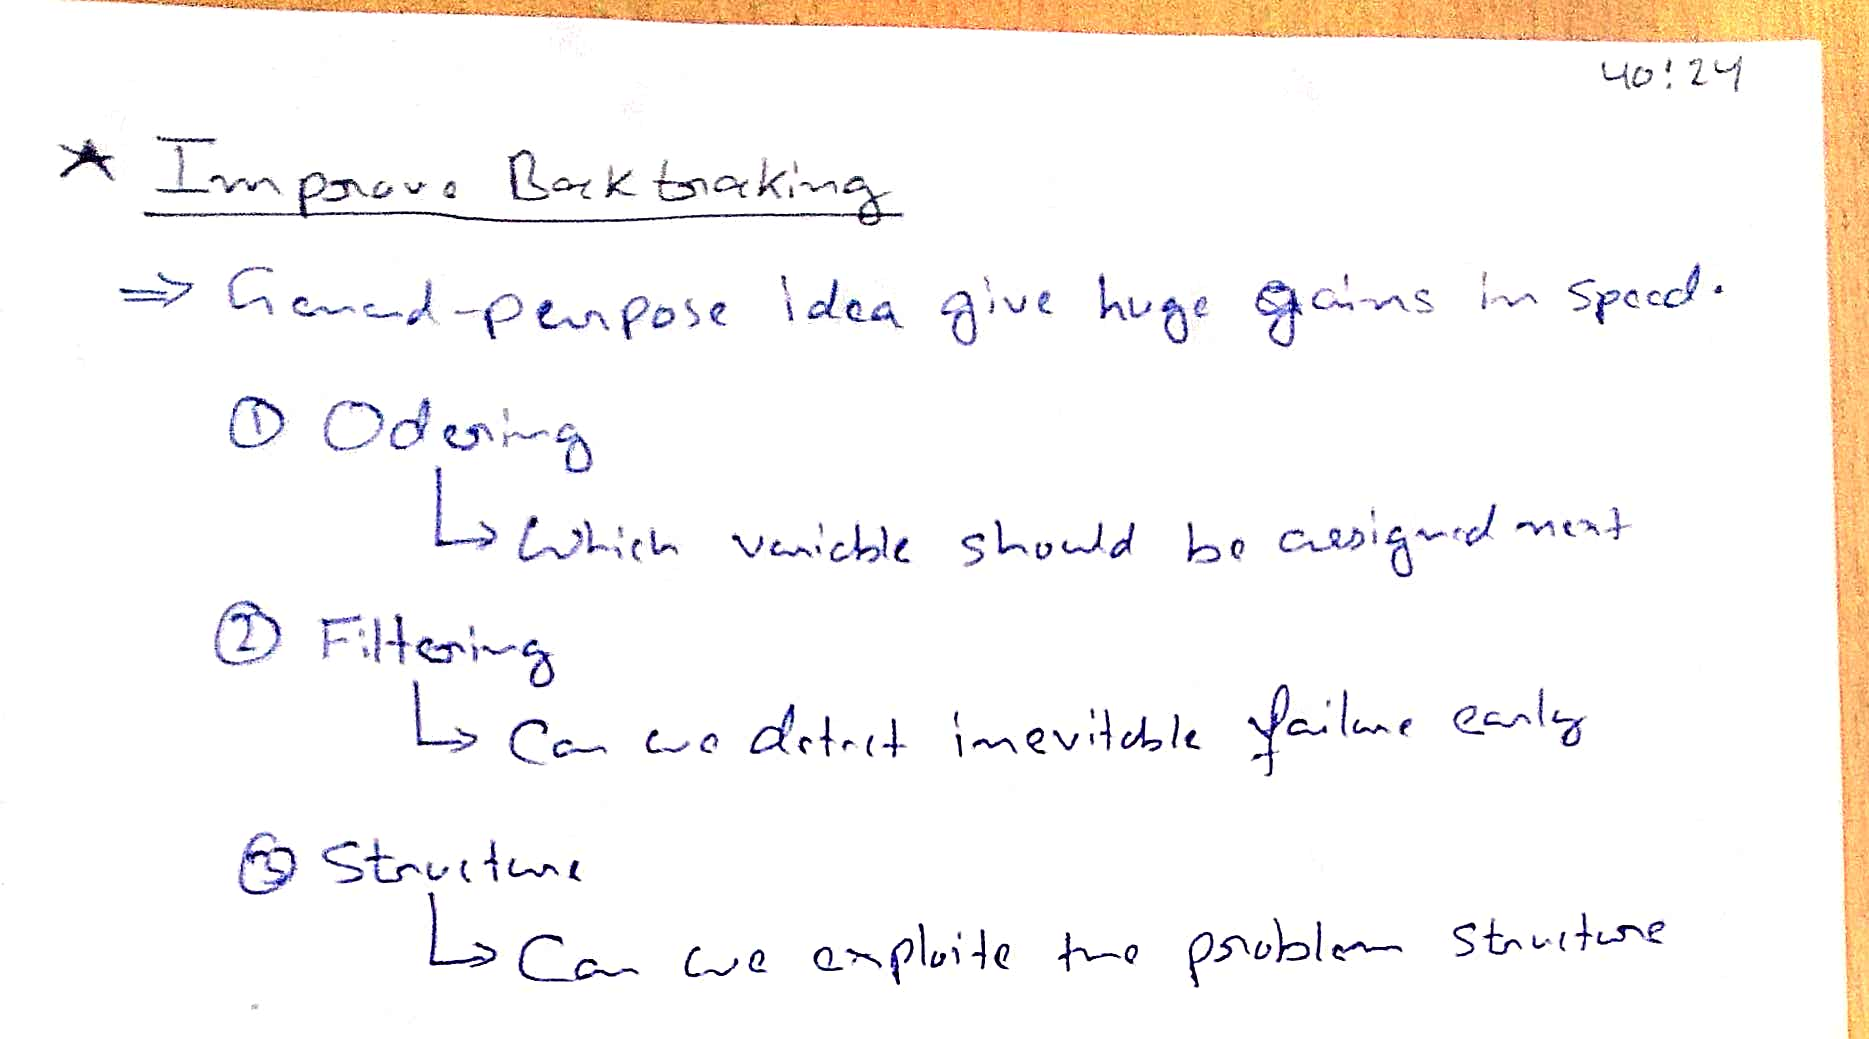 40:24
* Improve Backtracking
⇒ General-purpose idea give huge gains in speed.
① Odering
↳ Which variable should be assigned next
② Filtering
↳ Can we detect inevitable failure early
③ Structure
↳ Can we exploite the problem structure